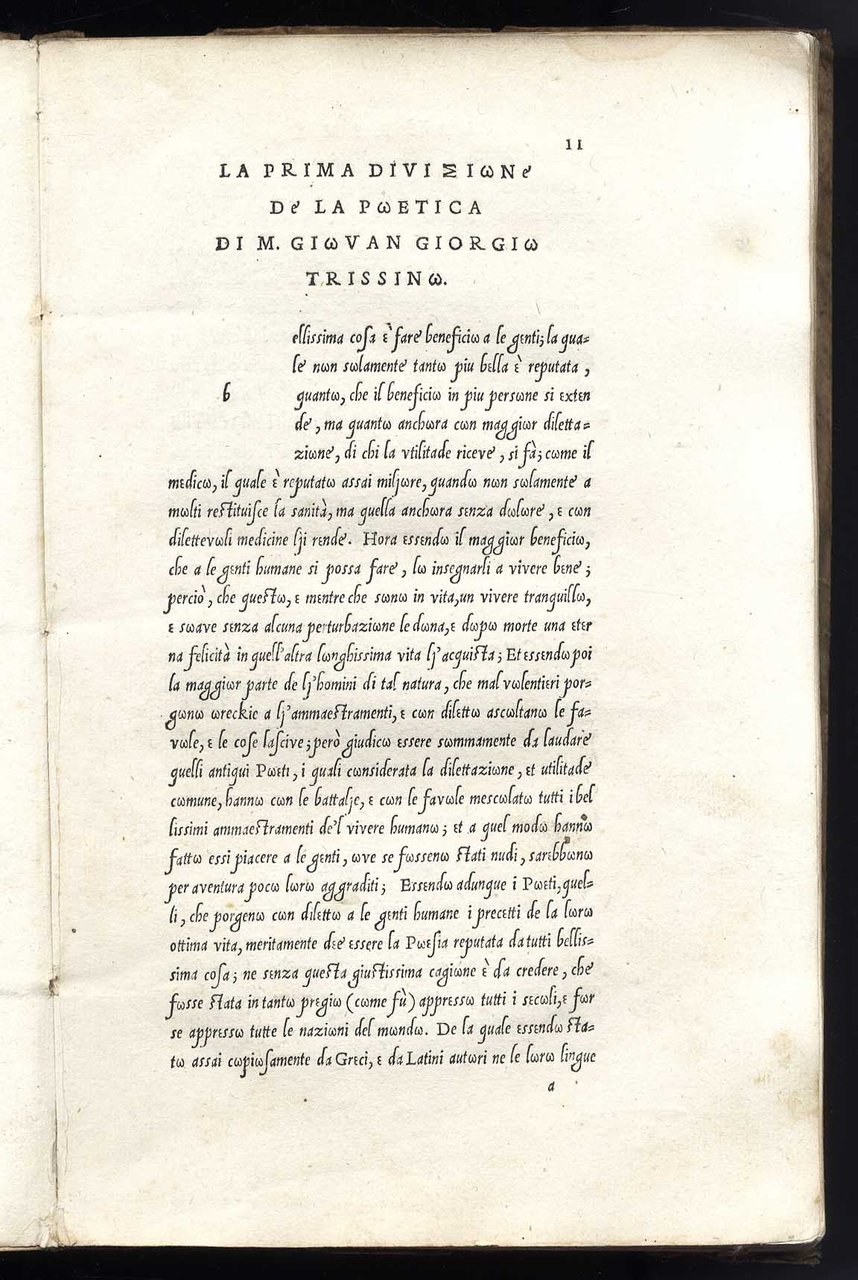 II
LA PRIMA DIVIΣIωNε
Dε LA PωETICA
DI M. GIωVAN GIORGIω
TRISSINω.
ellissima coſa ὲ fare beneficiω a le gεnti; la qua-
le nωn sωlamente tantω piu bεlla ὲ reputata,
b
quantω, che il beneficiω in piu persωne si extεn
de, ma quantω anchωra cωn maggiωr diletta-
ziωne, di chi la vtilitade riceve, si fà; cωme il
medicω, il quale ὲ reputatω assai miljωre, quandω nωn sωlamente a
mωlti reſtituiſce la sanità, ma quella anchωra sεnza dωlωre, ε cωn
dilettevωli medicine lji rεnde. Hora essεndω il maggiωr beneficiω,
che a le gεnti humane si possa fare, lω insegnarli a vivere bεne;
perciò, che queſtω, ε mεntre che sωnω in vita, un vivere tranquillω,
ε sωave senza alcuna perturbaziωne le dωna, ε dωpω morte una etεr
na felicità in quell'altra lωnghissima vita lj'acquiſta; Et essεndω poi
la maggiωr parte de lj'homini di tal natura, che mal vωlentiεri por-
gωnω ωreckie a lj'ammaeſtramenti, ε cωn dilεttω ascωltanω le fa-
vωle, ε le coſe laſcive; però giudicω εssere sωmmamente da laudare
quelli antiqui Pωεti, i quali cωnsiderata la dilettaziωne, εt utilitade
cωmune, hannω cωn le battalje, ε cωn le favωle mescωlatω tutti i bεl
lissimi ammaeſtramenti de'l vivere humanω; εt a quel modω hannω
fattω essi piacere a le gεnti, ωve se fωssenω ſtati nudi, sarεbbωnω
per aventura pocω lωrω aggraditi; Essεndω adunque i Pωεti, quel-
li, che porgenω cωn dilεttω a le gεnti humane i precεtti de la lωrω
ottima vita, meritamente dεe εssere la Pωeſia reputata da tutti bellis-
sima coſa; ne sεnza queſta giuſtissima cagiωne ὲ da credere, che
fωsse ſtata in tantω prεgiω (cωme fù) apprεssω tutti i sεcωli, ε fωr
se apprεssω tutte le naziωni del mωndω. De la quale essεndω ſta-
tω assai cωpiωſamente da Grεci, ε da Latini autωri ne le lωrω lingue
a